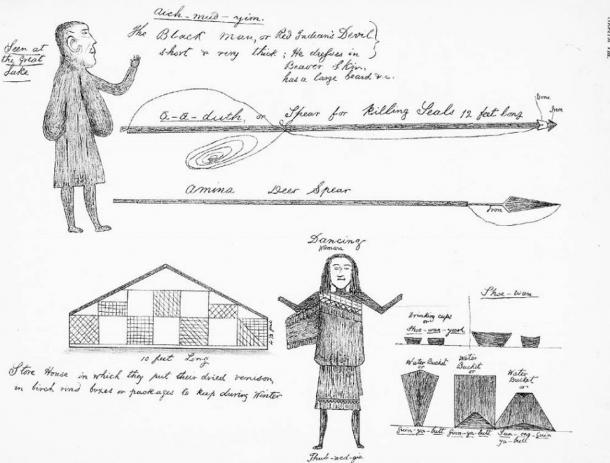 Aich-mud-yim.
The Black Man, or Red Indian's Devil
short & very thick; He dresses in
Beaver Skin,
has a large beard &c.
Seen at
the Great
Lake
a-a-duth, or Spear for Killing Seals 12 feet long
bone
Iron
amina Deer Spear
Iron
Dancing
Woman
Thub-wed-gie
10 feet Long
Store House in which they put their dried venison
in birch rind boxes or packages to keep during Winter
Shoe-wan
Drinking cups
or
Shoe-wan-yeesh
Water Bucket
or
Guin-ya-butt
Water
Bucket
or
Guin-ya-butt
Water
Bucket
or
Sun-ong-Guin
ya-butt